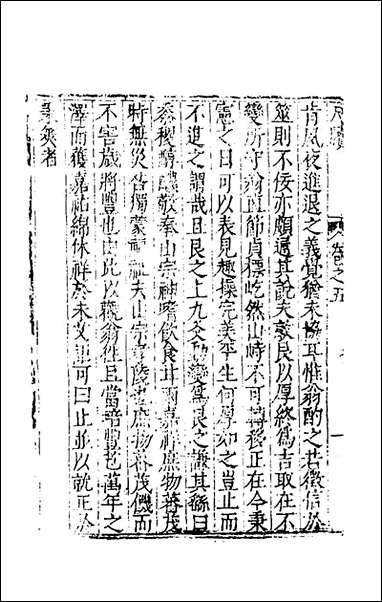 尺牘 卷之五 一
肯夙夜進退之義覺猶未協耳惟翁酌之若徵信於
筮則不佞亦頗遇其說夫敦艮以厚終為吉取在不
變所守翁直節貞標屹然山峙不可轉移正在今秉
憲之日可以表見趣操完美平生何學如之豈止而
不進之謂哉且艮之上九爻動變為艮之謙其繇曰
黍稷醇醲敬奉山宗神嗜飲食甘雨嘉祥庶物蕃茂
時無災咎獨蒙福祉夫山宗也庶物蕃茂饑而
不害歲將豐也由此以觀翁往且當培豐芑萬年之
澤而獲嘉祉綿休祥於未艾迺可曰止並以就正於
翁者